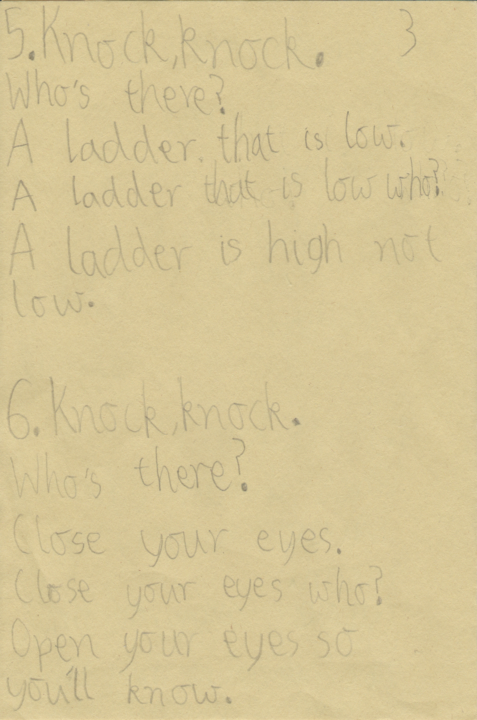 5. Knock, knock. 3
Who's there?
A ladder that is low.
A ladder that is low who?
A ladder is high not
low.
6. Knock, knock.
Who's there?
Close your eyes.
Close your eyes who?
Open your eyes so
you'll know.